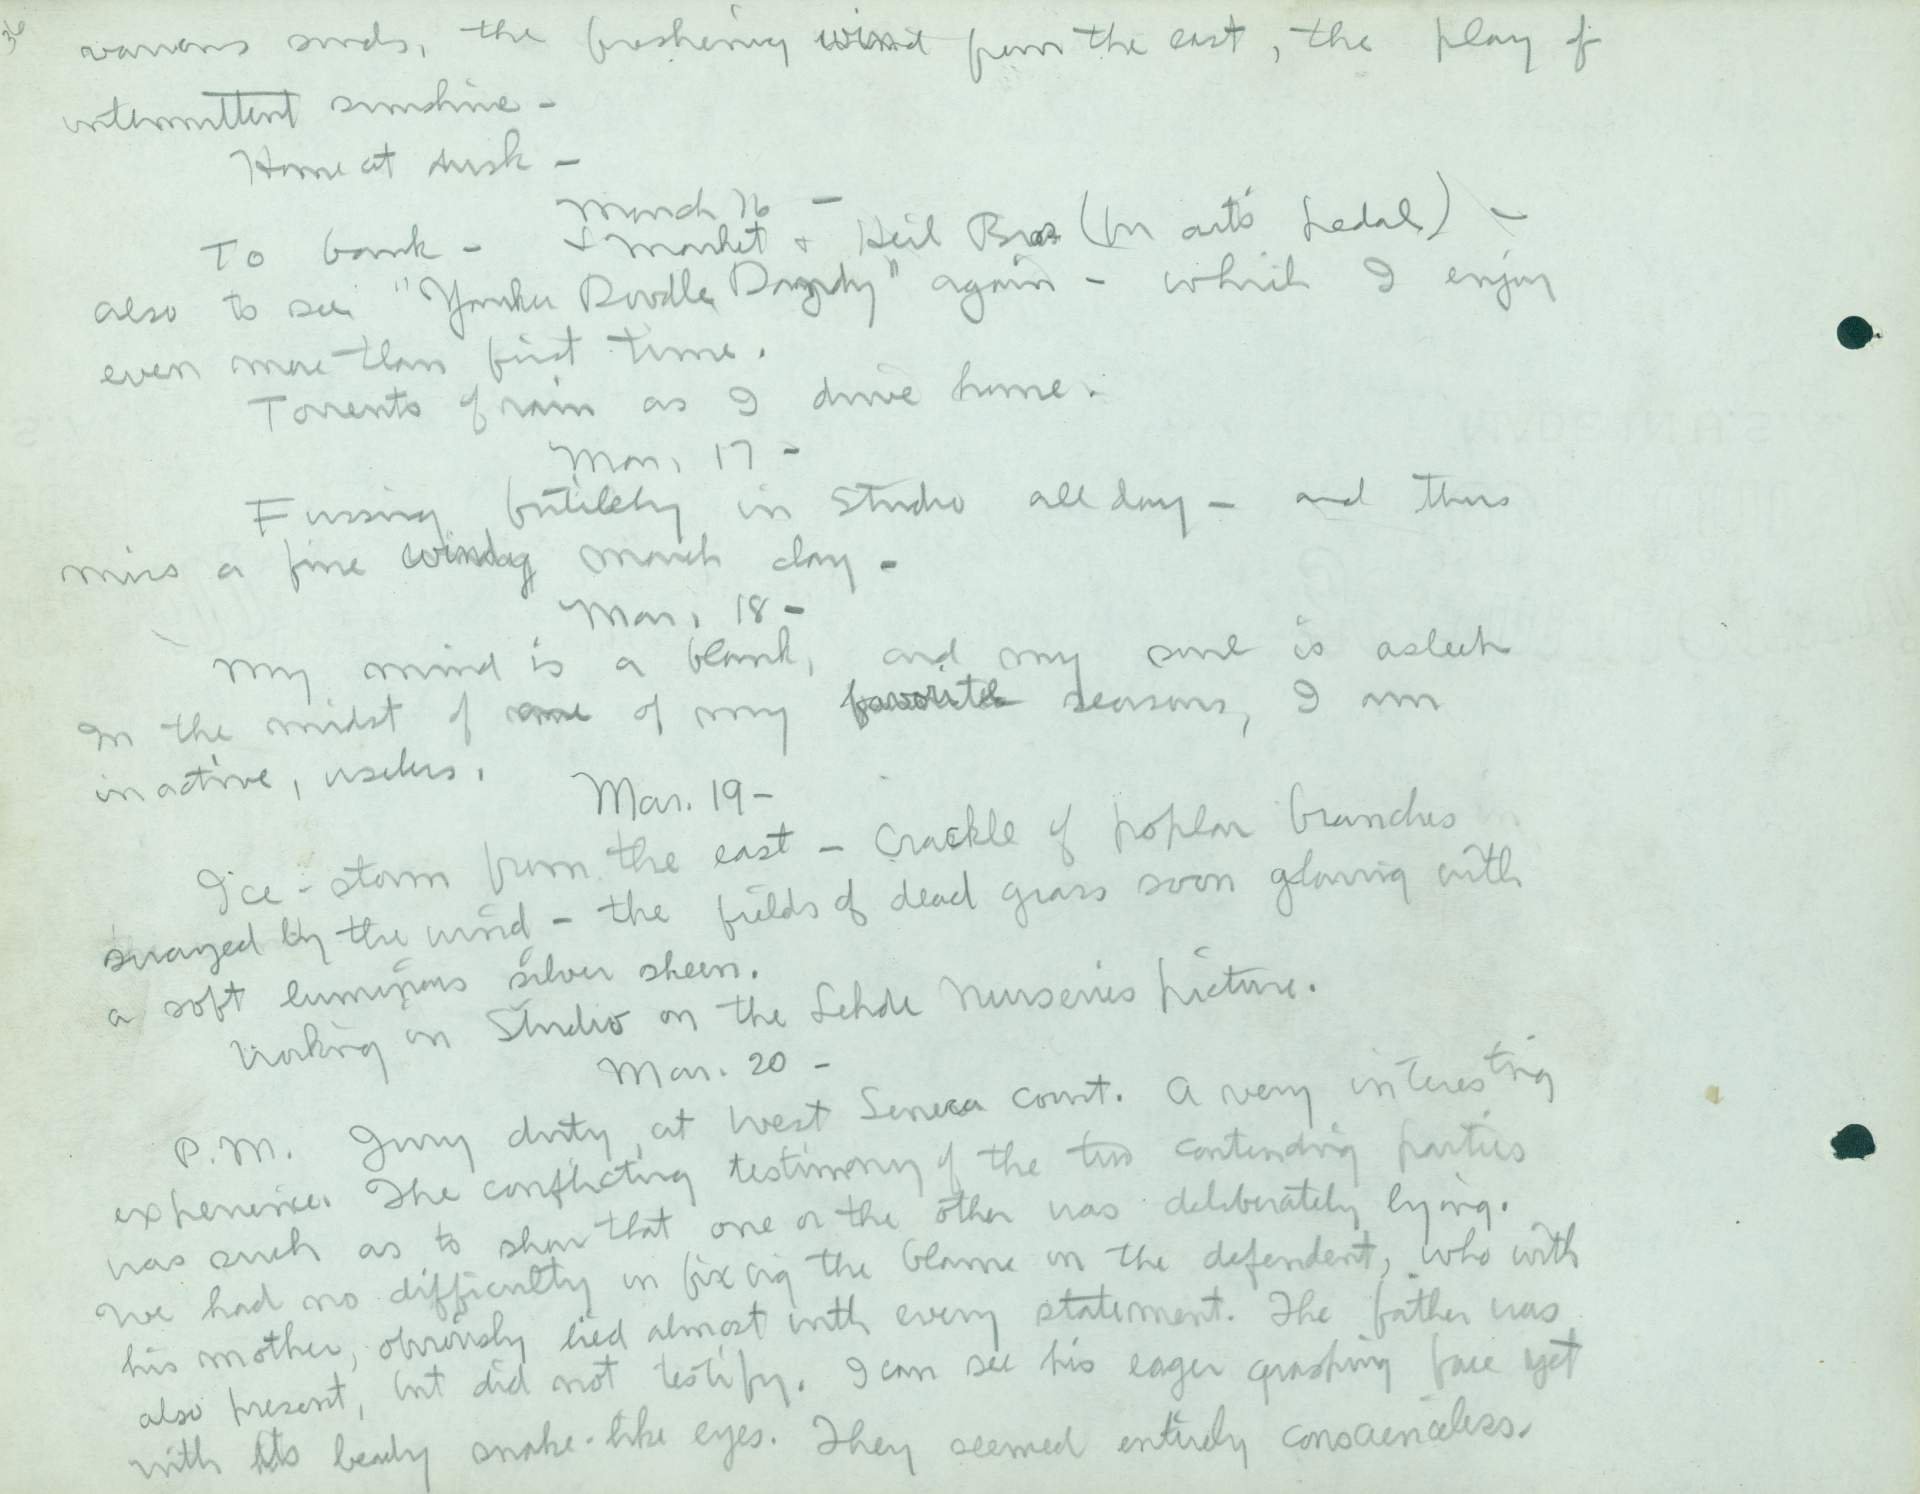 36
various sends, the freshening wind from the east, the play of
intermittent sunshine -
Home at dusk -
March 16 -
To bank - & Market & Heil Bros (In auto Sedal) -
also to see "Yankee Doodle Dandy" again - which I enjoy
even more than first time.
Torrents of rain as I drive home.
Mar. 17 -
Fussing futilely in Studio all day - and thus
miss a fine windy March day -
Mar. 18 -
My mind is a blank, and my soul is asleep
In the midst of one of my favorite seasons, I am
inactive, useless.
Mar. 19 -
Ice-storm from the east - Crackle of poplar branches
swayed by the wind - the fields of dead grass soon glowing with
a soft luminous silver sheen.
Working in Studio on the Lehde Nurseries picture.
Mar. 20 -
P.M. Jury duty, at West Seneca court. A very interesting
experience. The conflicting testimony of the two contending parties
was such as to show that one or the other was deliberately lying.
We had no difficulty in fixing the blame on the defendent, who with
his mother, obviously lied almost with every statement. The father was
also present, but did not testify. I can see his eager grasping face yet
with its beady snake-like eyes. They seemed entirely conscienceless.